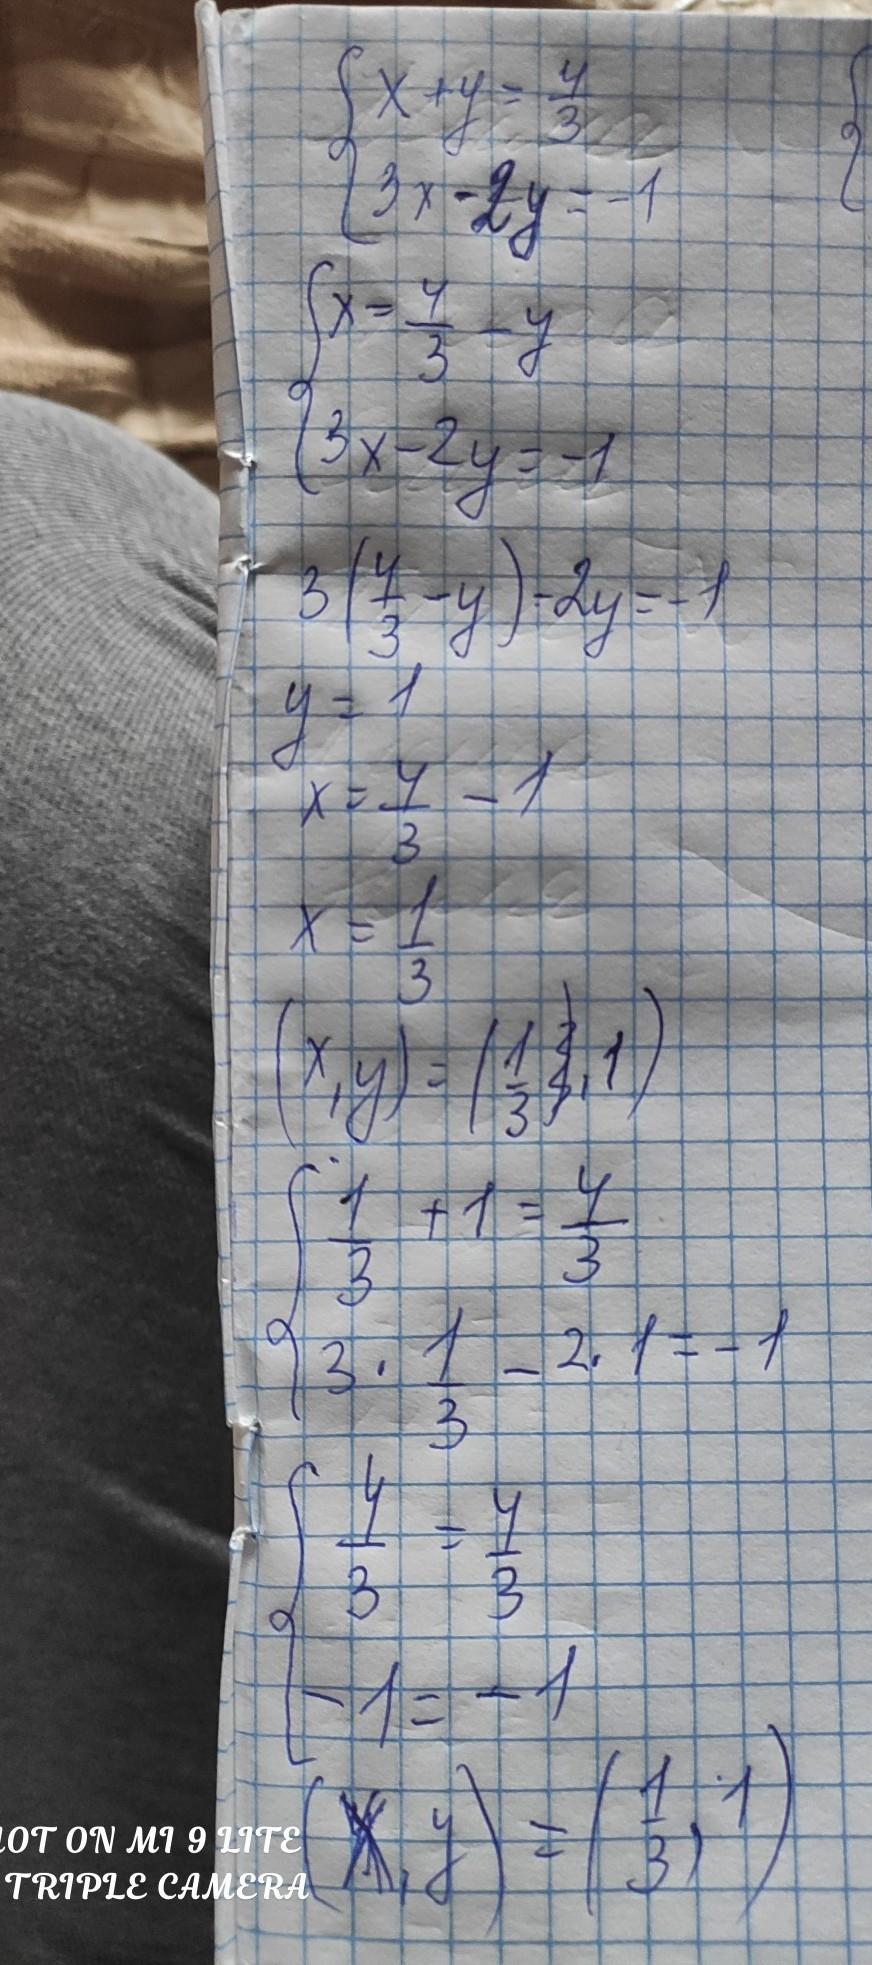 x + y = 4/3
3x - 2y = -1
x = 4/3 - y
3x - 2y = -1
3(4/3 - y) - 2y = -1
y = 1
x = 4/3 - 1
x = 1/3
(x, y) = (1/3, 1)
1/3 + 1 = 4/3
3 · 1/3 - 2 · 1 = -1
4/3 = 4/3
-1 = -1
(x, y) = (1/3, 1)
HOT ON MI 9 LITE
TRIPLE CAMERA